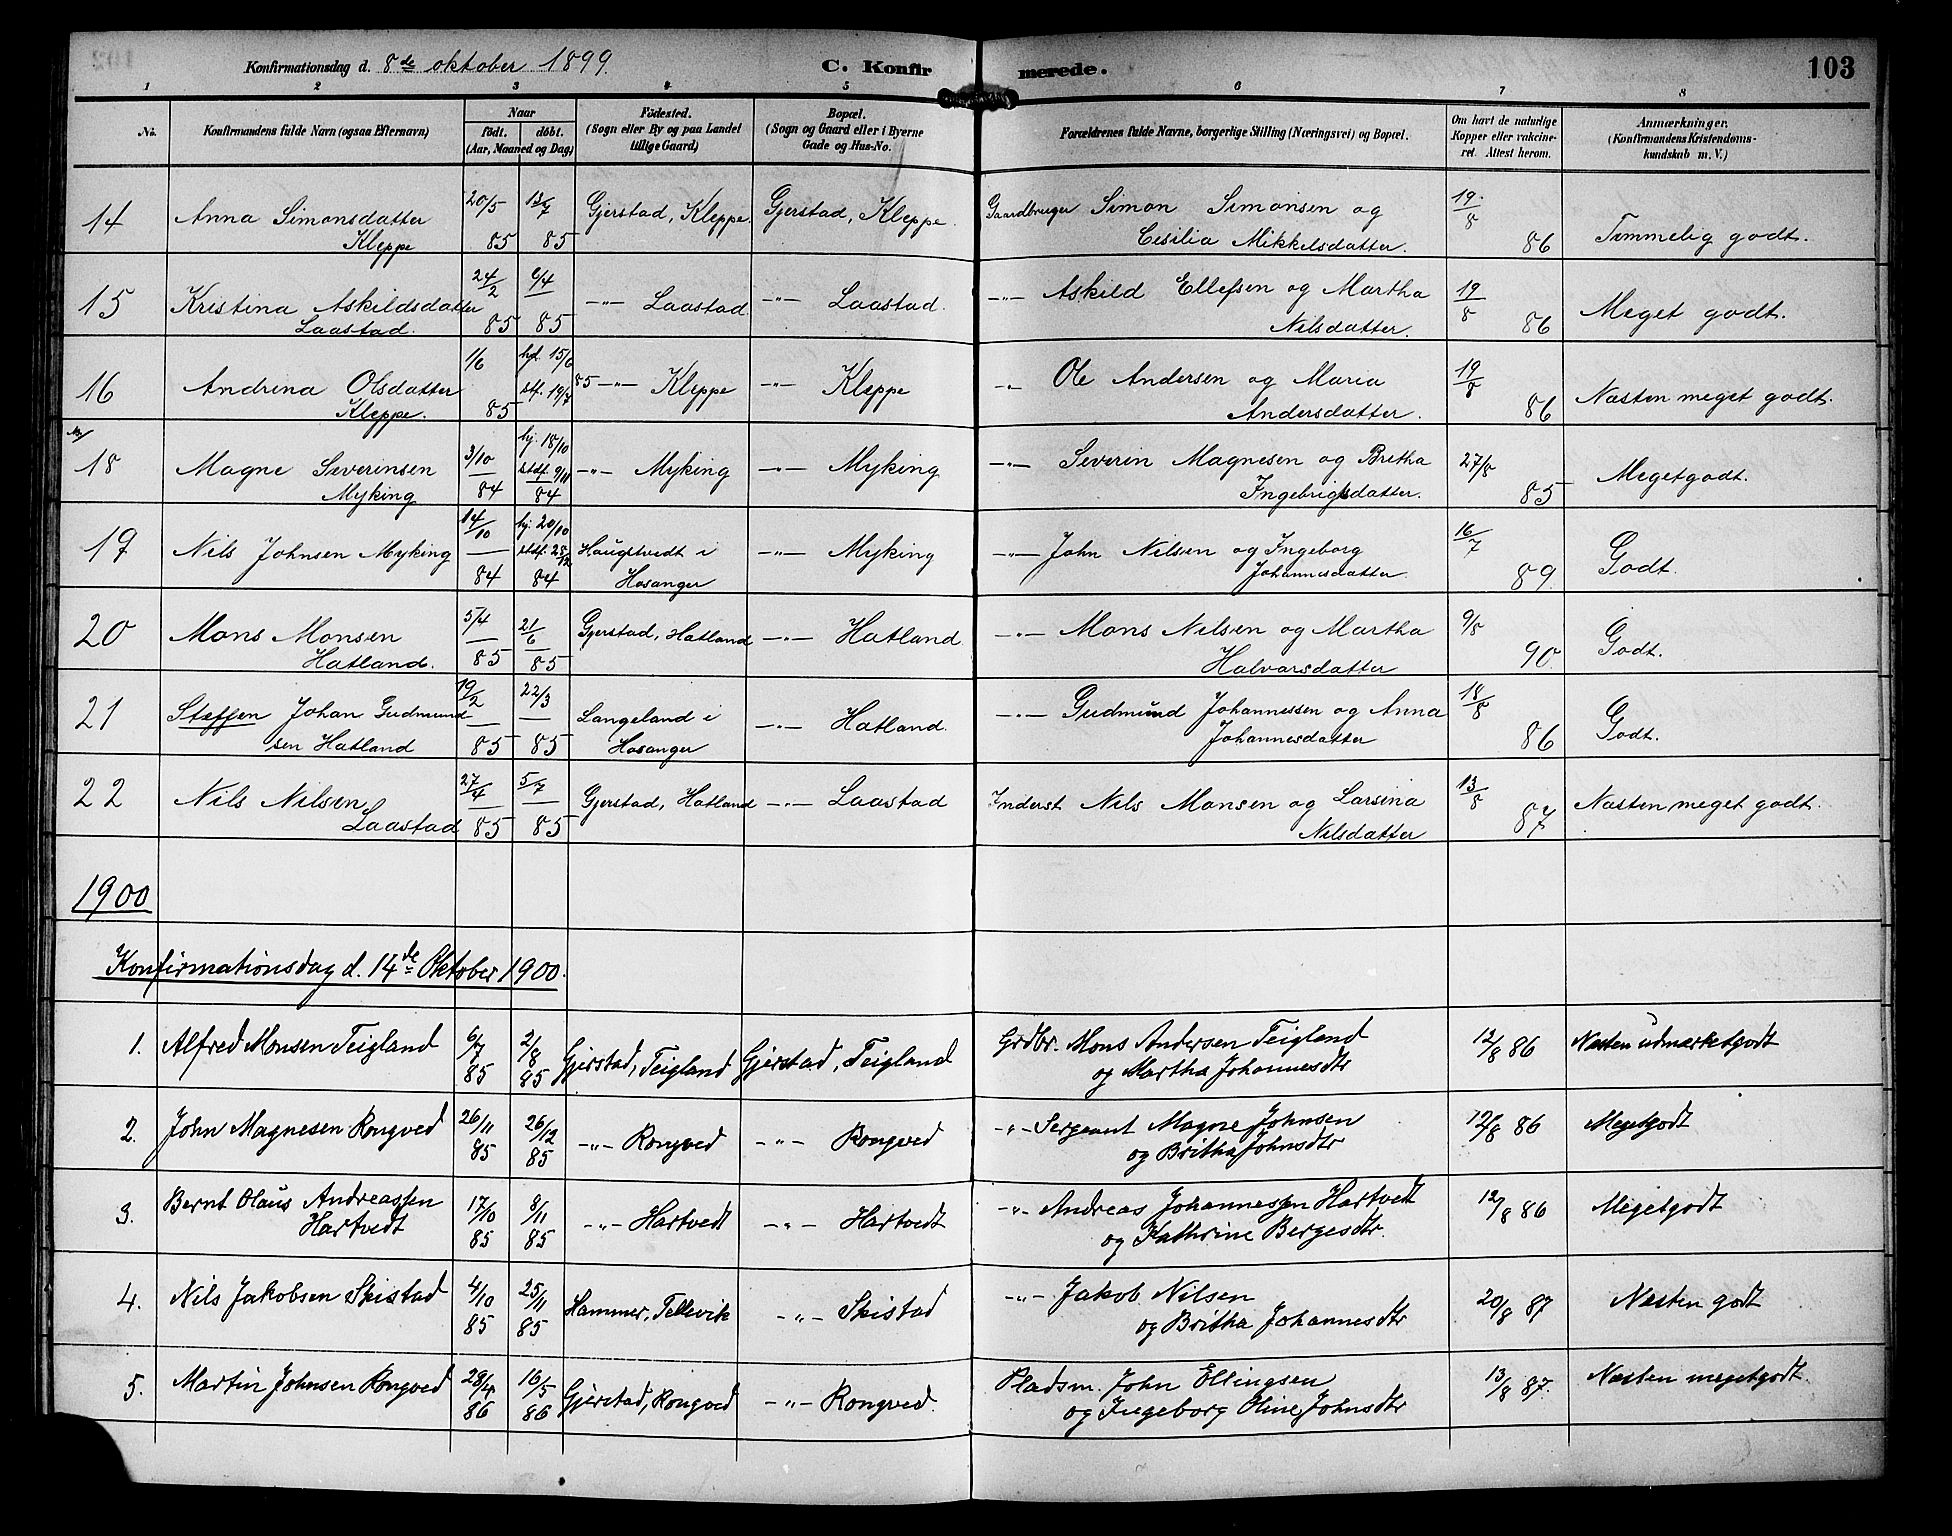 Konfirmationsdag d. 8de oktober 1899. C. Konfirmerede. 103
1 2 3 4 5 6 7 8
No. Konfirmandens fulde Navn (ogsaa Efternavn) Naar født. døbt. (Aar, Maaned og Dag) Fødested. (Sogn eller By og paa Landet tillige Gaard) Bopæl. (Sogn og Gaard eller i Byerne Gade og Hus-No. Forældrenes fulde Navne, borgerlige Stilling (Næringsvei) og Bopæl. Om havt de naturlige Kopper eller vakcineret. Attest herom. Anmærkninger. (Konfirmandens Kristendomskundskab m. V.)
14 Anna Simonsdatter 20/5 12/7 Gjerstad, Kleppe. Gjerstad, Kleppe. Gaardbruger Simon Simonsen og 19/8
Kleppe 85 85 Cesilia Mikkelsdatter. 86 Temmelig godt.
15 Kristina Askildsdatter 24/2 6/4 -"- Laastad -"- Laastad. -"- Askild Ellefsen og Martha 19/8
Laastad. 85 85 Nilsdatter. 86 Meget godt.
16 Andrina Olsdatter 1/6 hjd. 15/6 -"- Kleppe -"- Kleppe -"- Ole Andersen og Maria 19/8
Kleppe. 85 stf. 19/7 85 Andersdatter. 86 Næsten meget godt.
18 Magne Severinsen 3/10 hj. 18/10 -"- Myking -"- Myking -"- Severin Magnesen og Bretha 27/8
Myking 84 stdf. 9/11 84 Ingebrigtsdatter. 85 Megetgodt.
19 Nils Johnsen Myking 14/10 hj. 20/10 Haugstvedt i -"- Myking -"- John Nilsen og Ingeborg 16/7
84 stdf. 28/12 84 Hosanger Johannesdatter. 89. Godt.
20 Mons Monsen 5/4 21/6 Gjerstad, Hatland -"- Hatland -"- Mons Nilsen og Martha 9/8
Hatland. 85 85 Halvarsdatter 90. Godt.
21 Steffen Johan Gudmund 19/2 22/3 Langeland i -"- Hatland. -"- Gudmund Johannessen og Anna 18/8
sen Hatland 85 85 Hosanger Johannesdatter 86 Godt.
22 Nils Nilsen 27/4 5/7 Gjerstad, Hatland -"- Laastad Inderst Nils Monsen og Larsina 13/8
Laastad 85 85 Nilsdatter 87 Næsten meget godt.
1900
Konfirmationsdag d. 14de Oktober 1900.
1. Alfred Monsen Teigland 6/7 85 2/8 85 Gjerstad, Teigland Gjerstad, Teigland Grdbr. Mons Andersen Teigland 12/8 86 Næsten udmærketgodt
og Martha Johannesdtr
2. John Magnesen Rongved 26/11 85 26/12 85 -"- Rongved -"- Rongved -"- Sergeant Magne Johnsen 12/8 86 Megetgodt
og Britha Johnsdtr
3. Bernt Olaus Andreassen 17/10 85 8/11 85 -"- Hartvedt -"- Hartvedt -"- Andreas Johannessen Hartvedt 12/8 86 Megetgodt
Hartvedt og Kathrine Bergesdtr.
4. Nils Jakobsen Skistad 4/10 85 25/11 85 Hammer, Tellevik -"- Skistad -"- Jakob Nilsen 20/8 87 Næsten godt
og Britha Johannesdtr
5. Martin Johnsen Rongved 28/4 86 16/5 86 Gjerstad, Rongved -"- Rongved. Pladsm. John Ellingsen 13/8 87. Næsten megetgodt.
og Ingeborg Oline Johnsdtr